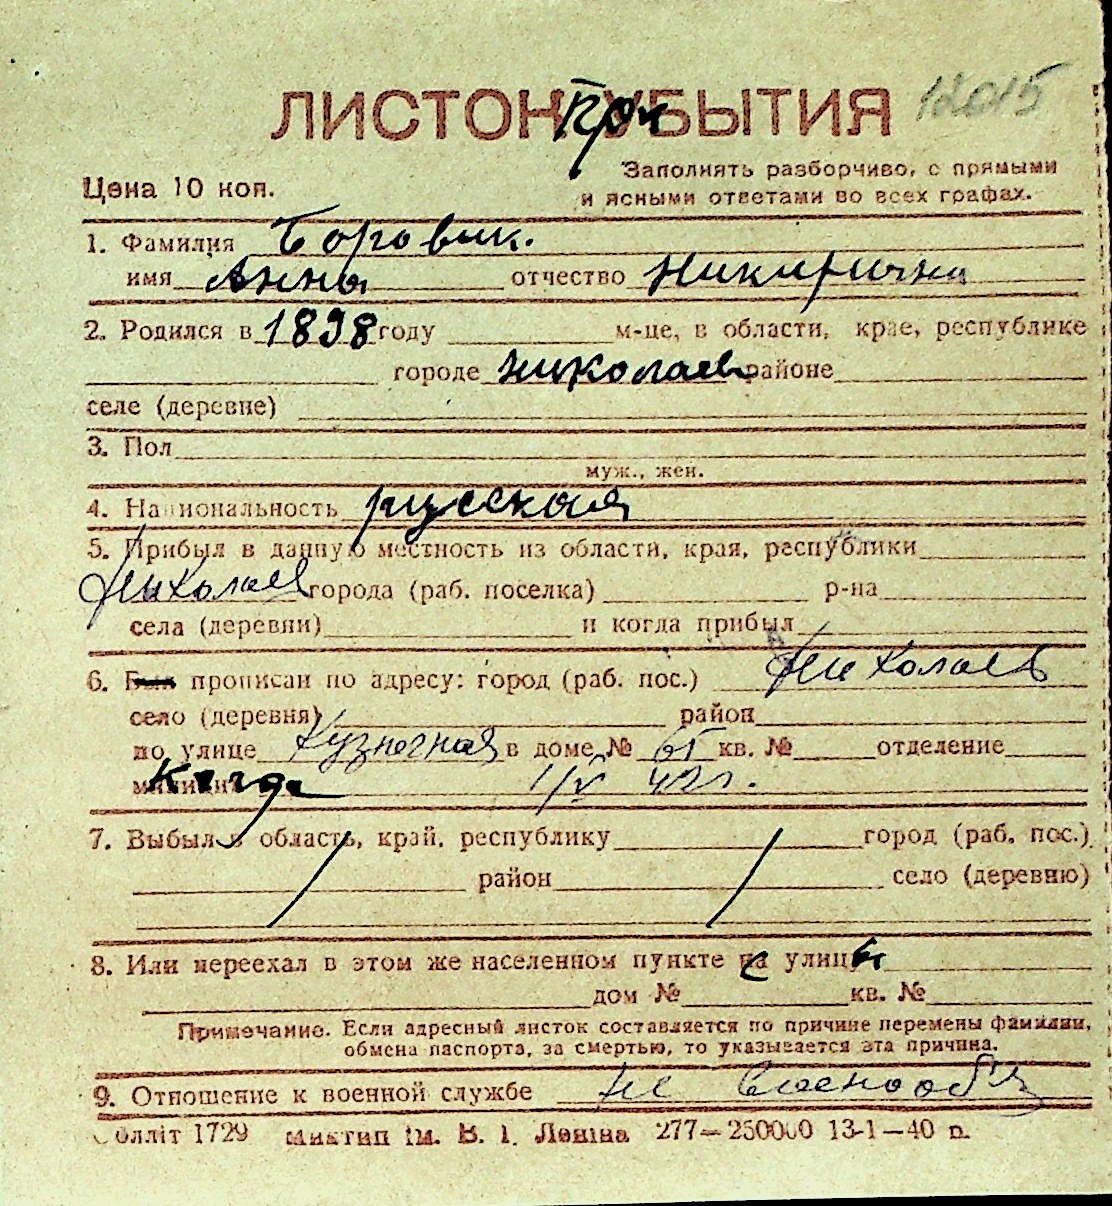 12015
ЛИСТОК УБЫТИЯ
При
Цена 10 коп.
Заполнять разборчиво, с прямыми
и ясными ответами во всех графах.
1. Фамилия Боровик.
имя Анна отчество
2. Родился в 1898 году м-це, в области, крае, республике
городе Николаев районе
селе (деревне)
3. Пол
муж., жен.
4. Национальность русская
5. Прибыл в данную местность из области, края, республики
Николаев города (раб. поселка) р-на
села (деревни) и когда прибыл
6. Был прописан по адресу: город (раб. пос.) Николаев
село (деревня) район
по улице Кузнечная в доме № 65 кв. № отделение
милиции Когда 1/V 42 г.
7. Выбыл в область, край, республику город (раб. пос.)
район село (деревню)
8. Или переехал в этом же населенном пункте на улицу
дом № кв. №
Примечание. Если адресный листок составляется по причине перемены фамилии,
обмена паспорта, за смертью, то указывается эта причина.
9. Отношение к военной службе не военнооб'я
Облліт 1729 Миктип ім. В. І. Леніна 277—250000 13-1—40 р.